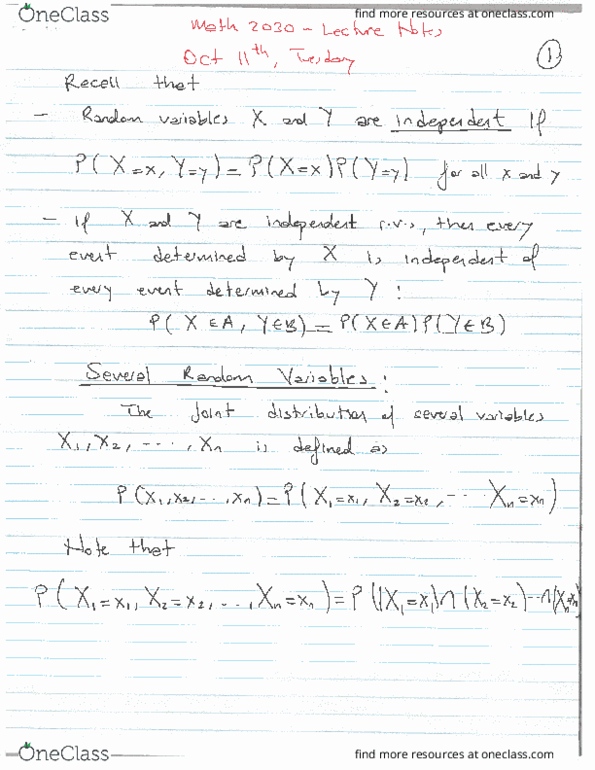 OneClass
find more resources at oneclass.com
Math 2030 - Lecture Notes
Oct 11th, Tuesday
1
Recall that
- Random variables X and Y are independent If
P(X=x, Y=y) = P(X=x)P(Y=y) for all x and y
- If X and Y are independent r.v.s, then every
event determined by X is independent of
every event determined by Y :
P(X∈A, Y∈B) = P(X∈A)P(Y∈B)
Several Random Variables:
The joint distribution of several variables
X₁, X₂, ---, Xn is defined as
P(x₁,x₂,--,xn) = P(X₁=x₁, X₂=x₂, -- Xn=xn)
Note that
P(X₁=x₁, X₂=x₂, --, Xn=xn) = P((X₁=x₁)∩(X₂=x₂)--∩(Xn=xn)
OneClass
find more resources at oneclass.com